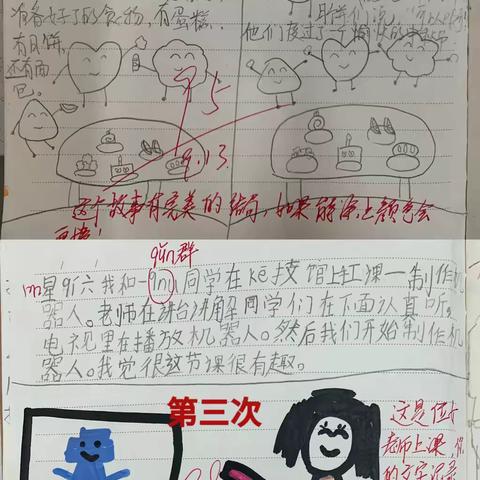 准备好了的食物，有蛋糕，
有月饼，
还有面
包。
他们度过了一个愉快的
5
9.13
这个故事有完美的结局，如果能涂上颜色会
更棒！
qún群
星qī六我和一qún同学在kē技馆上课一制作机
器人。老师在讲台讲解同学们在下面认真听，
电视里在播放机器人。然后我们开始制作机
器人。我觉很这节课很有趣。
第三次
这是位
老师上课，你
的文字记录